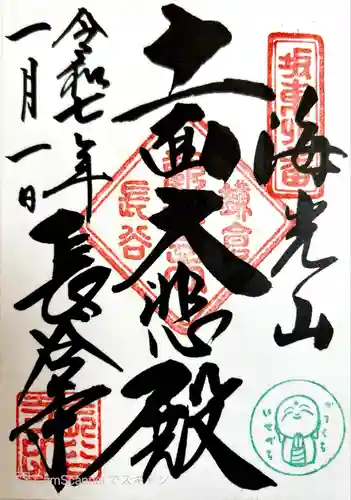 坂東四番
海光山
十一面大悲殿
鎌倉
長谷
令和七年
一月一日
長谷寺
かまくら
はせでら
CamScannerでスキャン